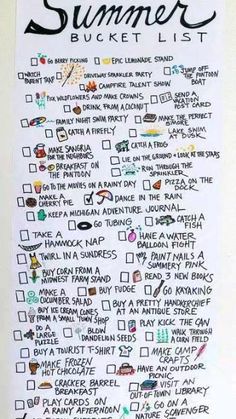 Summer
BUCKET LIST
GO BERRY PICKING EPIC LEMONADE STAND
WATCH PARENT TRAP BIRTHDAY SPARKLER PARTY JUMP OFF THE PONTOON BOAT
CAMPFIRE TALENT SHOW
PICK WILDFLOWERS AND MAKE CROWNS SEND A VACATION POST CARD
DRINK FROM A COCONUT
FAMILY NIGHT SWIM PARTY MAKE THE PERFECT S'MORE
CATCH A FIREFLY LAKE SWIM AT DUSK
MAKE SANGRIA FOR THE NEIGHBORS CATCH A FROG
LIE ON THE GROUND + LOOK AT THE STARS
BREAKFAST ON THE PONTOON RUN THROUGH THE SPRINKLER
GO TO THE MOVIES ON A RAINY DAY PIZZA ON THE DOCK
MAKE A CHERRY PIE DANCE IN THE RAIN
KEEP A MICHIGAN ADVENTURE JOURNAL
GO TUBING CATCH A FISH
TAKE A HAMMOCK NAP HAVE A WATER BALLOON FIGHT
TWIRL IN A SUNDRESS PAINT NAILS A SUMMERY PINK
BUY CORN FROM A MIDWEST FARM STAND READ 3 NEW BOOKS
MAKE A CUCUMBER SALAD BUY FUDGE GO KAYAKING
BUY ICE CREAM CONES FROM A SMALL TOWN SHOP BUY A PRETTY HANDKERCHIEF AT AN ANTIQUE STORE
DO A LARGE PUZZLE BLOW DANDELION SEEDS PLAY KICK THE CAN
WALK THROUGH A CORN FIELD
BUY A TOURIST T-SHIRT MAKE CAMP CRAFTS
MAKE FROZEN HOT CHOCOLATE HAVE AN OUTDOOR PICNIC
CRACKER BARREL BREAKFAST VISIT AN OUT-OF-TOWN LIBRARY
PLAY CARDS ON A RAINY AFTERNOON GO ON A NATURE SCAVENGER